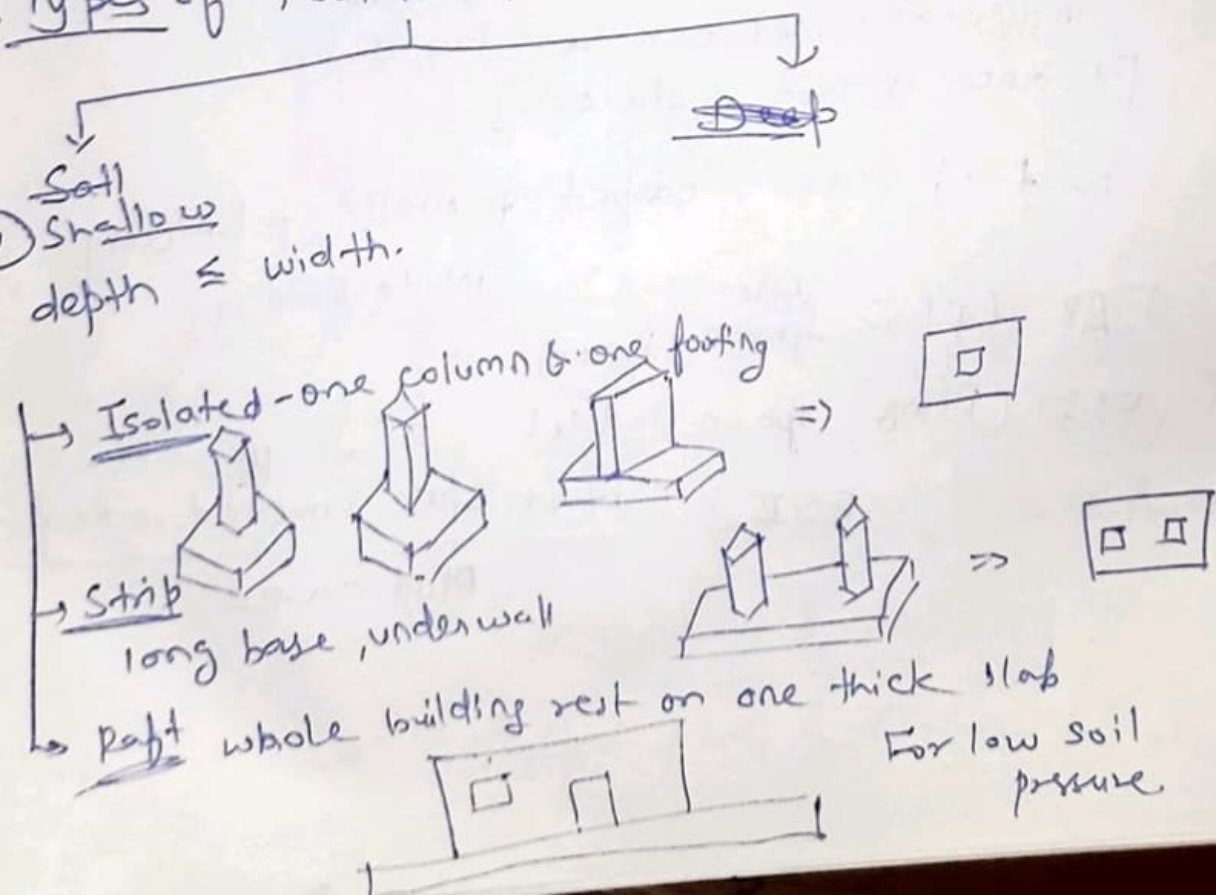 Types of
Deep
Soil
Shallow
depth ≤ width.
→ Isolated - one column & one footing
=>
=>
→ Strip
long base, under wall
→ Raft whole building rest on one thick slab
For low soil
pressure